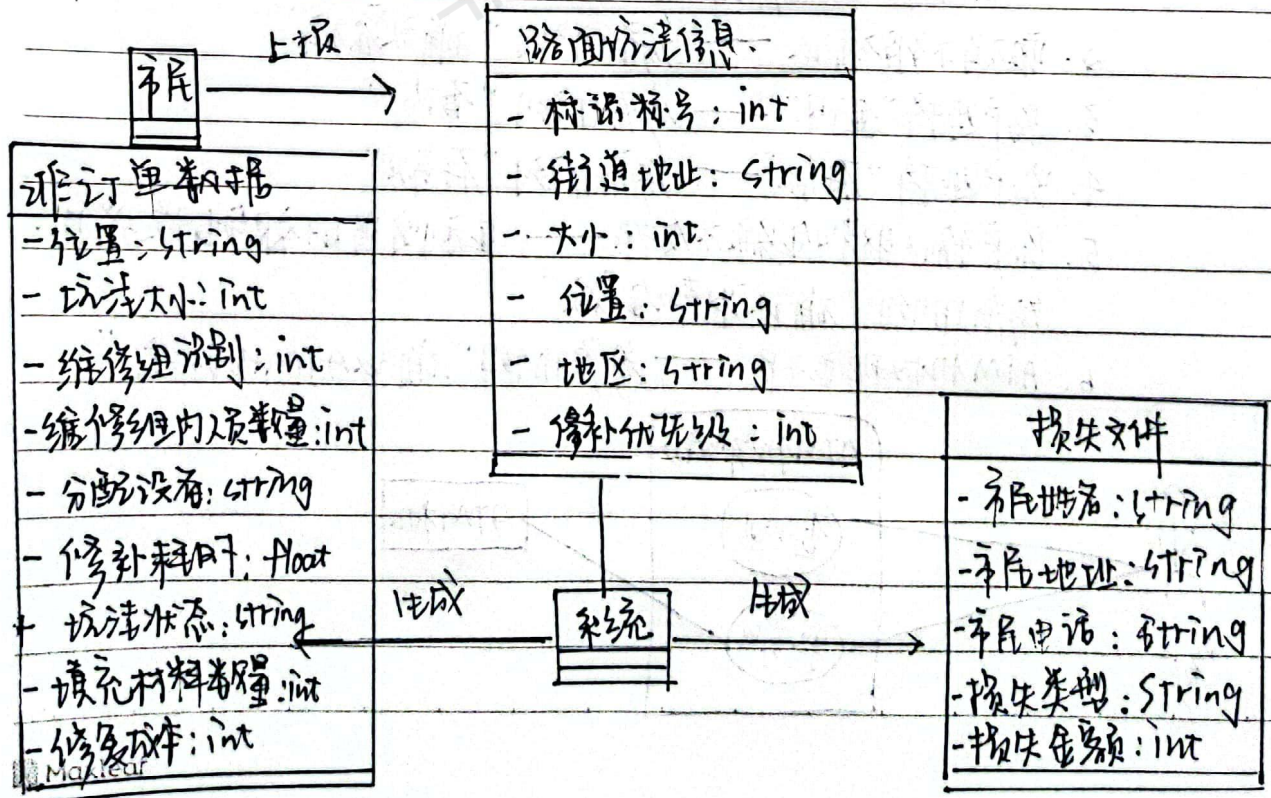 市民
上报
路面坑洼信息
- 标识称号：int
- 街道地址：String
- 大小：int
- 位置：String
- 地区：String
- 修补优先级：int
订单数据
- 位置：String
- 坑洼大小：int
- 维修组识别：int
- 维修组内人员数量：int
- 分配设备：String
- 修补耗时：float
- 坑洼状态：String
- 填充材料数量：int
- 修复成本：int
生成
系统
生成
损失文件
- 市民姓名：String
- 市民地址：String
- 市民电话：String
- 损失类型：String
- 损失金额：int
Maxleaf